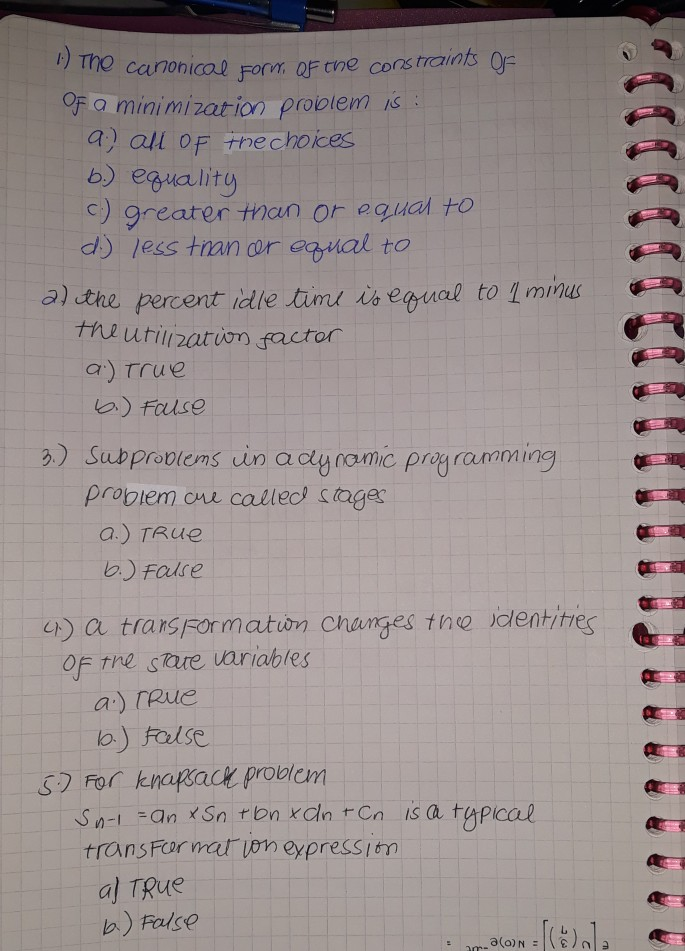 1.) The canonical Form, OF the constraints OF
OF a minimization problem is :
a.) all OF the choices
b.) equality
c.) greater than or equal to
d.) less than or equal to
2) the percent idle time is equal to 1 minus
the utilization factor
a.) True
b.) False
3.) Subproblems in a dynamic programming
problem are called stages
a.) TRUE
b.) False
4.) a transformation changes the identities
OF the state variables
a.) TRUE
b.) False
5.) For knapsack problem
Sn-1 = an x Sn + bn x dn + cn is a typical
transformation expression
a) TRUE
b.) False